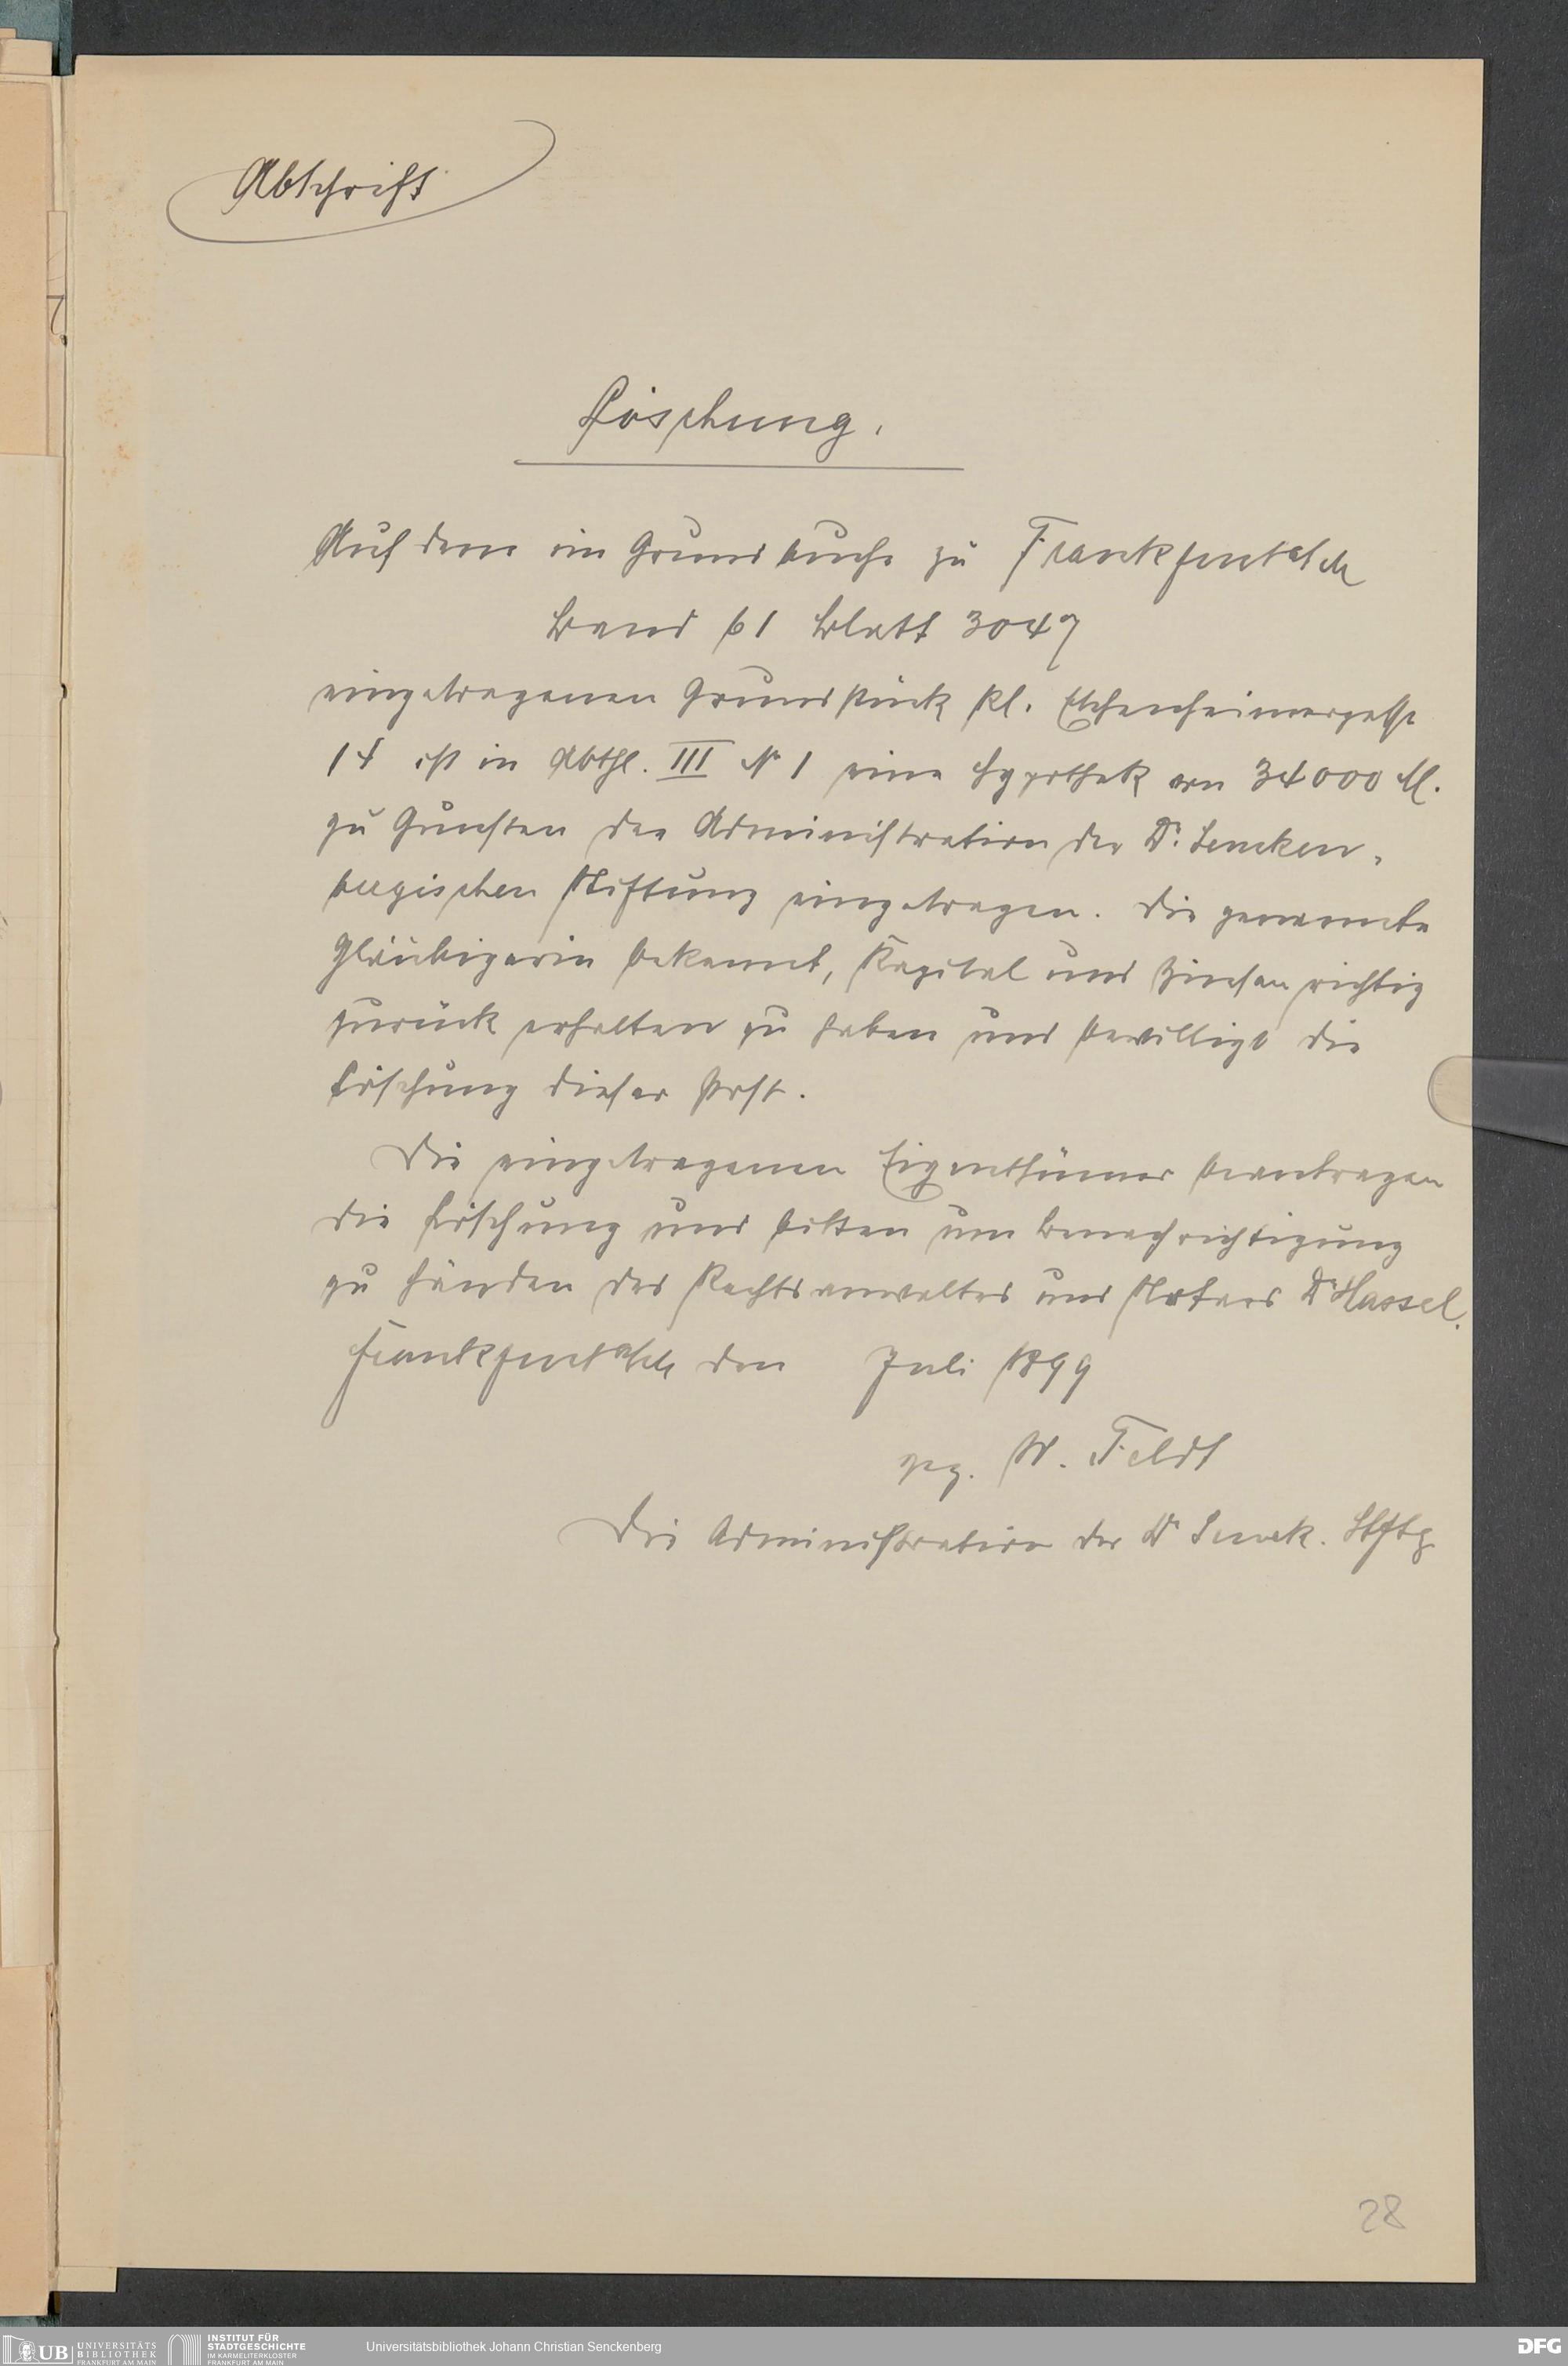 Abschrift
Löschung.
Auf dem im Grundbuche zu Frankfurt a/M
Band 61 Blatt 3047
eingetragenen Grundstück kl. Eschenheimergasse
14 ist in Abthl. III No 1 eine Hypothek von 34000 M.
zu Gunsten der Administration der Dr. Sencken-
bergischen Stiftung eingetragen. Die genannte
Gläubigerin bekennt, Kapital und Zinsen richtig
zurück erhalten zu haben und bewilligt die
Löschung dieser Post.
Die eingetragenen Eigenthümer beantragen
die Löschung und bitten um Benachrichtigung
zu Händen des Rechtsanwaltes und Notars Dr Hassel.
Frankfurt a/M den Juli 1899
gez. W. Feldt
Die Administration der Dr Senck. Stftg
28
UB UNIVERSITÄTS
BIBLIOTHEK
FRANKFURT AM MAIN
INSTITUT FÜR
STADTGESCHICHTE
IM KARMELITERKLOSTER
FRANKFURT AM MAIN
Universitätsbibliothek Johann Christian Senckenberg
DFG